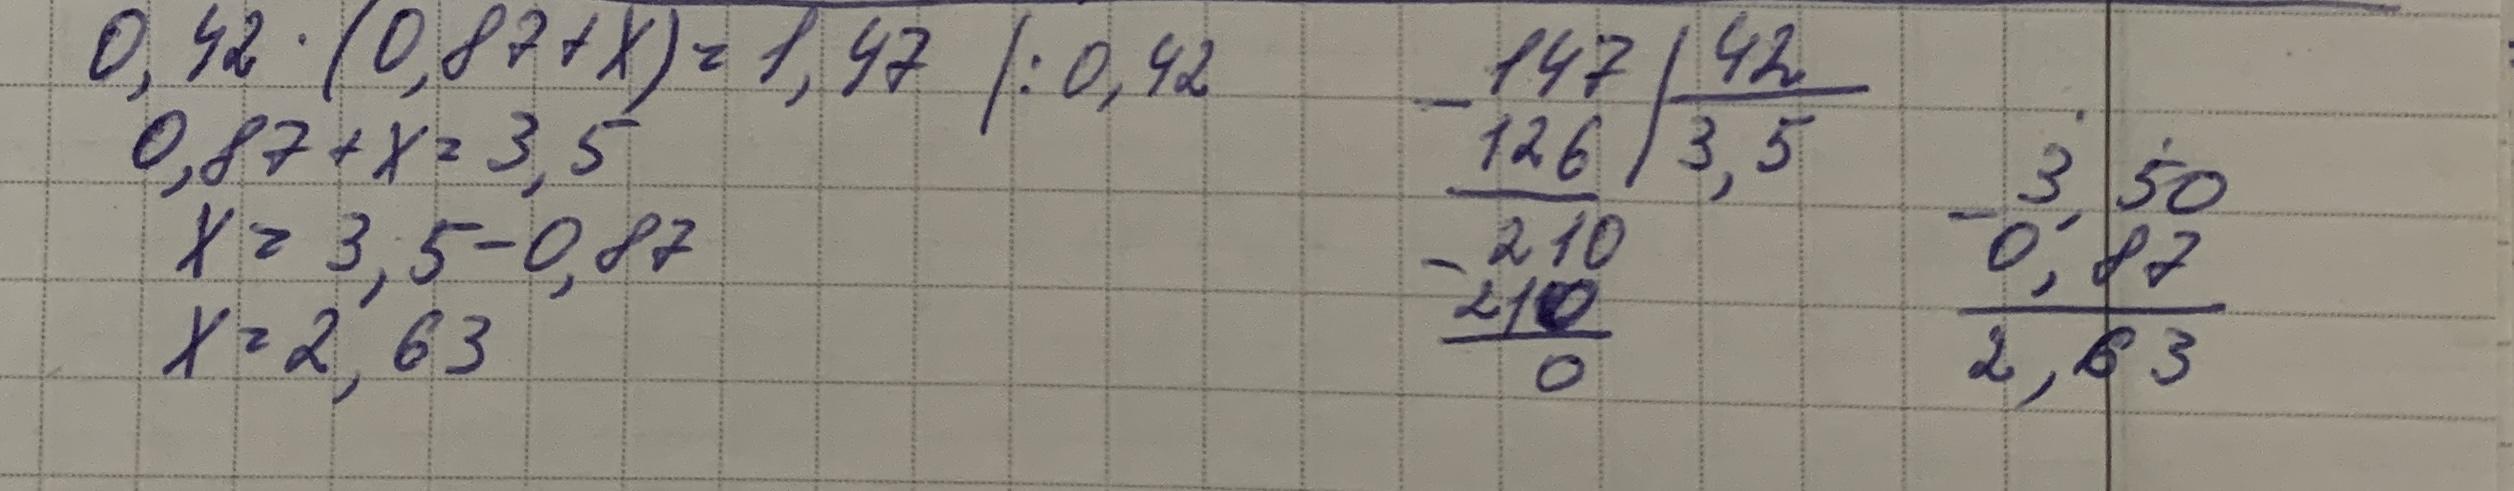 0,42 · (0,87 + x) = 1,47 | : 0,42
0,87 + x = 3,5
x = 3,5 - 0,87
x = 2,63
- 147 | 42
126 | 3,5
- 210
210
0
- 3,50
0,87
2,63